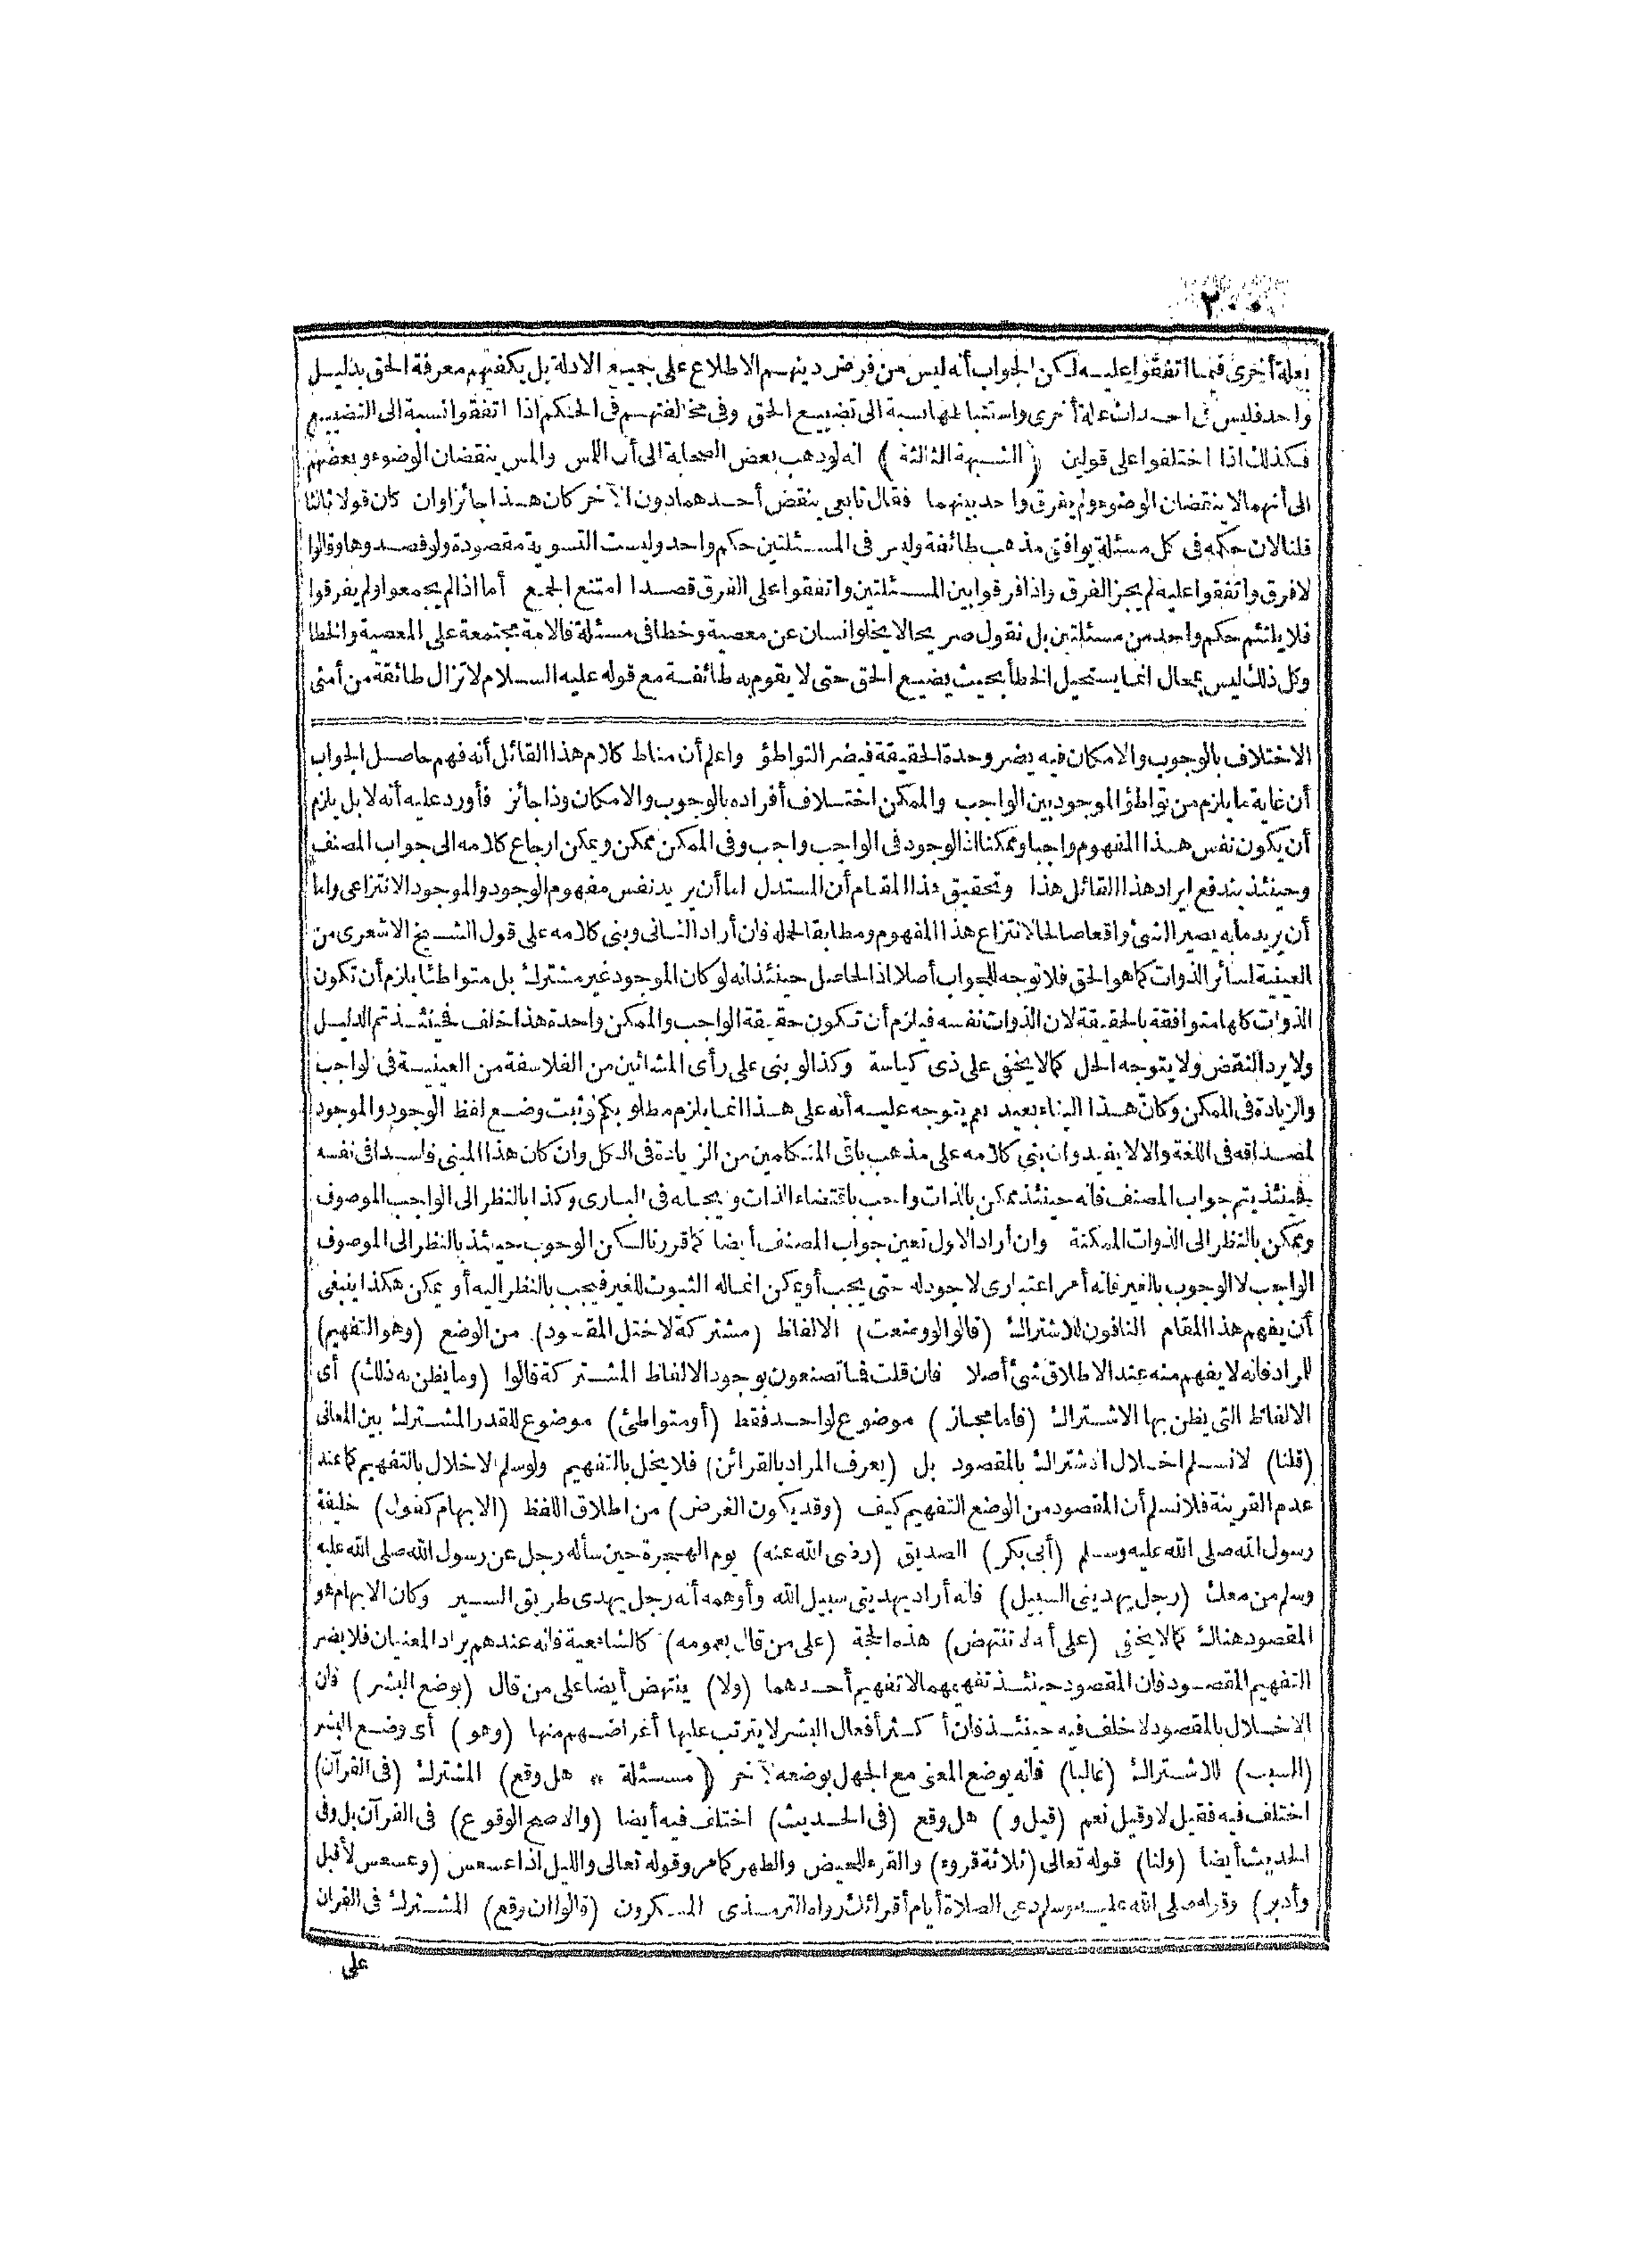 ٢٠٠
بعلة أخرى فيما اتفقوا عليه لكن الجواب أنه ليس من فرض دينهم الاطلاع على جميع الادلة بل يكفيهم معرفة الحق بدليل
واحد فليس فى احداث علة أخرى واستنباطها نسبة الى تضييع الحق وفى مخالفتهم فى الحكم اذا اتفقوا نسبة الى التضييع
فكذلك اذا اختلفوا على قولين (الشبهة الثالثة) انه لو ذهب بعض الصحابة الى أن اللمس والمس ينقضان الوضوء وبعضهم
الى أنهما لا ينقضان الوضوء ولم يفرق واحد بينهما فقال تابعى ينقض أحدهما دون الآخر كان هذا جائزا وان كان قولا ثالثا
قلنا لان حكمه فى كل مسئلة يوافق مذهب طائفة وليس فى المسئلتين حكم واحد وليست التسوية مقصودة ولو قصدوها وقالوا
لا فرق واتفقوا عليه لم يجز الفرق واذا فرقوا بين المسئلتين واتفقوا على الفرق قصدا امتنع الجمع أما اذا لم يجمعوا ولم يفرقوا
فلا يلتئم حكم واحد من مسئلتين بل نقول صريحا لا يخلو انسان عن معصية وخطا فى مسئلة فالامة مجتمعة على المعصية والخطا
وكل ذلك ليس بمحال انما يستحيل الخطأ بحيث يضيع الحق حتى لا يقوم به طائفة مع قوله عليه السلام لا تزال طائفة من أمتى
الاختلاف بالوجوب والامكان فيه يضر وحدة الحقيقة فيضر التواطؤ واعلم أن مناط كلام هذا القائل أنه فهم حاصل الجواب
أن غاية ما يلزم من تواطؤ الموجود بين الواجب والممكن اختلاف أفراده بالوجوب والامكان وذا جائز فأورد عليه أنه لا بل يلزم
أن يكون نفس هذا المفهوم واجبا وممكنا اذ الوجود فى الواجب واجب وفى الممكن ممكن ويمكن ارجاع كلامه الى جواب المصنف
وحينئذ يندفع ايراد هذا القائل هذا وتحقيق هذا المقام أن المستدل اما أن يريد نفس مفهوم الوجود والموجود الانتزاعى واما
أن يريد ما به يصير الشئ واقعا صالحا لانتزاع هذا المفهوم ومطابقا لحمله فان أراد الثانى وبنى كلامه على قول الشيخ الاشعرى من
العينية لسائر الذوات كما هو الحق فلا توجه للجواب أصلا اذ الحاصل حينئذ انه لو كان الموجود غير مشترك بل متواطئا يلزم أن تكون
الذوات كلها متوافقة بالحقيقة لان الذوات نفسه فيلزم أن تكون حقيقة الواجب والممكن واحدة هذا خلف فحينئذ تم الدليل
ولا يرد النقض ولا يتوجه الحل كما لا يخفى على ذى كياسة وكذا لو بنى على رأى المشائين من الفلاسفة من العينية فى الواجب
والزيادة فى الممكن وكان هذا البناء بعيد نعم يتوجه عليه أنه على هذا انما يلزم مطلوبكم لو ثبت وضع لفظ الوجود والموجود
لمصداقه فى اللغة والا لا يفيد وان بنى كلامه على مذهب باقى المتكلمين من الزيادة فى الكل وان كان هذا المبنى فاسدا فى نفسه
فحينئذ يتم جواب المصنف فانه حينئذ ممكن بالذات واجب باقتضاء الذات وايجابه فى البارى وكذا بالنظر الى الواجب الموصوف
وممكن بالنظر الى الذوات الممكنة وان أراد الاول تعين جواب المصنف أيضا كما قررنا لكن الوجوب حينئذ بالنظر الى الموصوف
الواجب لا الوجوب بالغير فانه أمر اعتبارى لا وجود له حتى يجب أو يمكن انما له الثبوت للغير فيجب بالنظر اليه أو يمكن هكذا ينبغى
أن يفهم هذا المقام النافون للاشتراك (قالوا لو وضعت) الالفاظ (مشتركة لاختل المقصود) من الوضع (وهو التفهيم)
للمراد فانه لا يفهم منه عند الاطلاق شئ أصلا فان قلت فما تصنعون بوجود الالفاظ المشتركة قالوا (وما يظن به ذلك) أى
الالفاظ التى يظن بها الاشتراك (فاما مجاز) موضوع لواحد فقط (أو متواطئ) موضوع للقدر المشترك بين المعانى
(قلنا) لا نسلم اخلال الاشتراك بالمقصود بل (يعرف المراد بالقرائن) فلا يخل بالتفهيم ولو سلم الاخلال بالتفهيم كما عند
عدم القرينة فلا نسلم أن المقصود من الوضع التفهيم كيف (وقد يكون الغرض) من اطلاق اللفظ (الابهام كقول) خليفة
رسول الله صلى الله عليه وسلم (أبى بكر) الصديق (رضى الله عنه) يوم الهجرة حين سأله رجل عن رسول الله صلى الله عليه
وسلم من معك (رجل يهدينى السبيل) فانه أراد يهدينى سبيل الله وأوهمه أنه رجل يهدى طريق السير وكان الابهام هو
المقصود هناك كما لا يخفى (على أنه لا تنتهض) هذه الحجة (على من قال بعمومه) كالشافعية فانه عندهم يراد المعنيان فلا يضر
التفهيم المقصود فان المقصود حينئذ تفهيمهما لا تفهيم أحدهما (ولا) ينتهض أيضا على من قال (بوضع البشر) فان
الاخلال بالمقصود لا خلف فيه حينئذ فان أكثر أفعال البشر لا يترتب عليها أغراضهم منها (وهو) أى وضع البشر
(السبب) للاشتراك (غالبا) فانه يوضع لمعنى مع الجهل بوضعه لآخر (مسئلة * هل وقع) المشترك (فى القرآن)
اختلف فيه فقيل لا وقيل نعم (قيل و) هل وقع (فى الحديث) اختلف فيه أيضا (والاصح الوقوع) فى القرآن بل وفى
الحديث أيضا (ولنا) قوله تعالى (ثلاثة قروء) والقرء للحيض والطهر كما مر وقوله تعالى والليل اذا عسعس (وعسعس لأقبل
وأدبر) وقوله صلى الله عليه وسلم دعى الصلاة أيام أقرائك رواه الترمذى المنكرون (قالوا ان وقع) المشترك فى القرآن
على